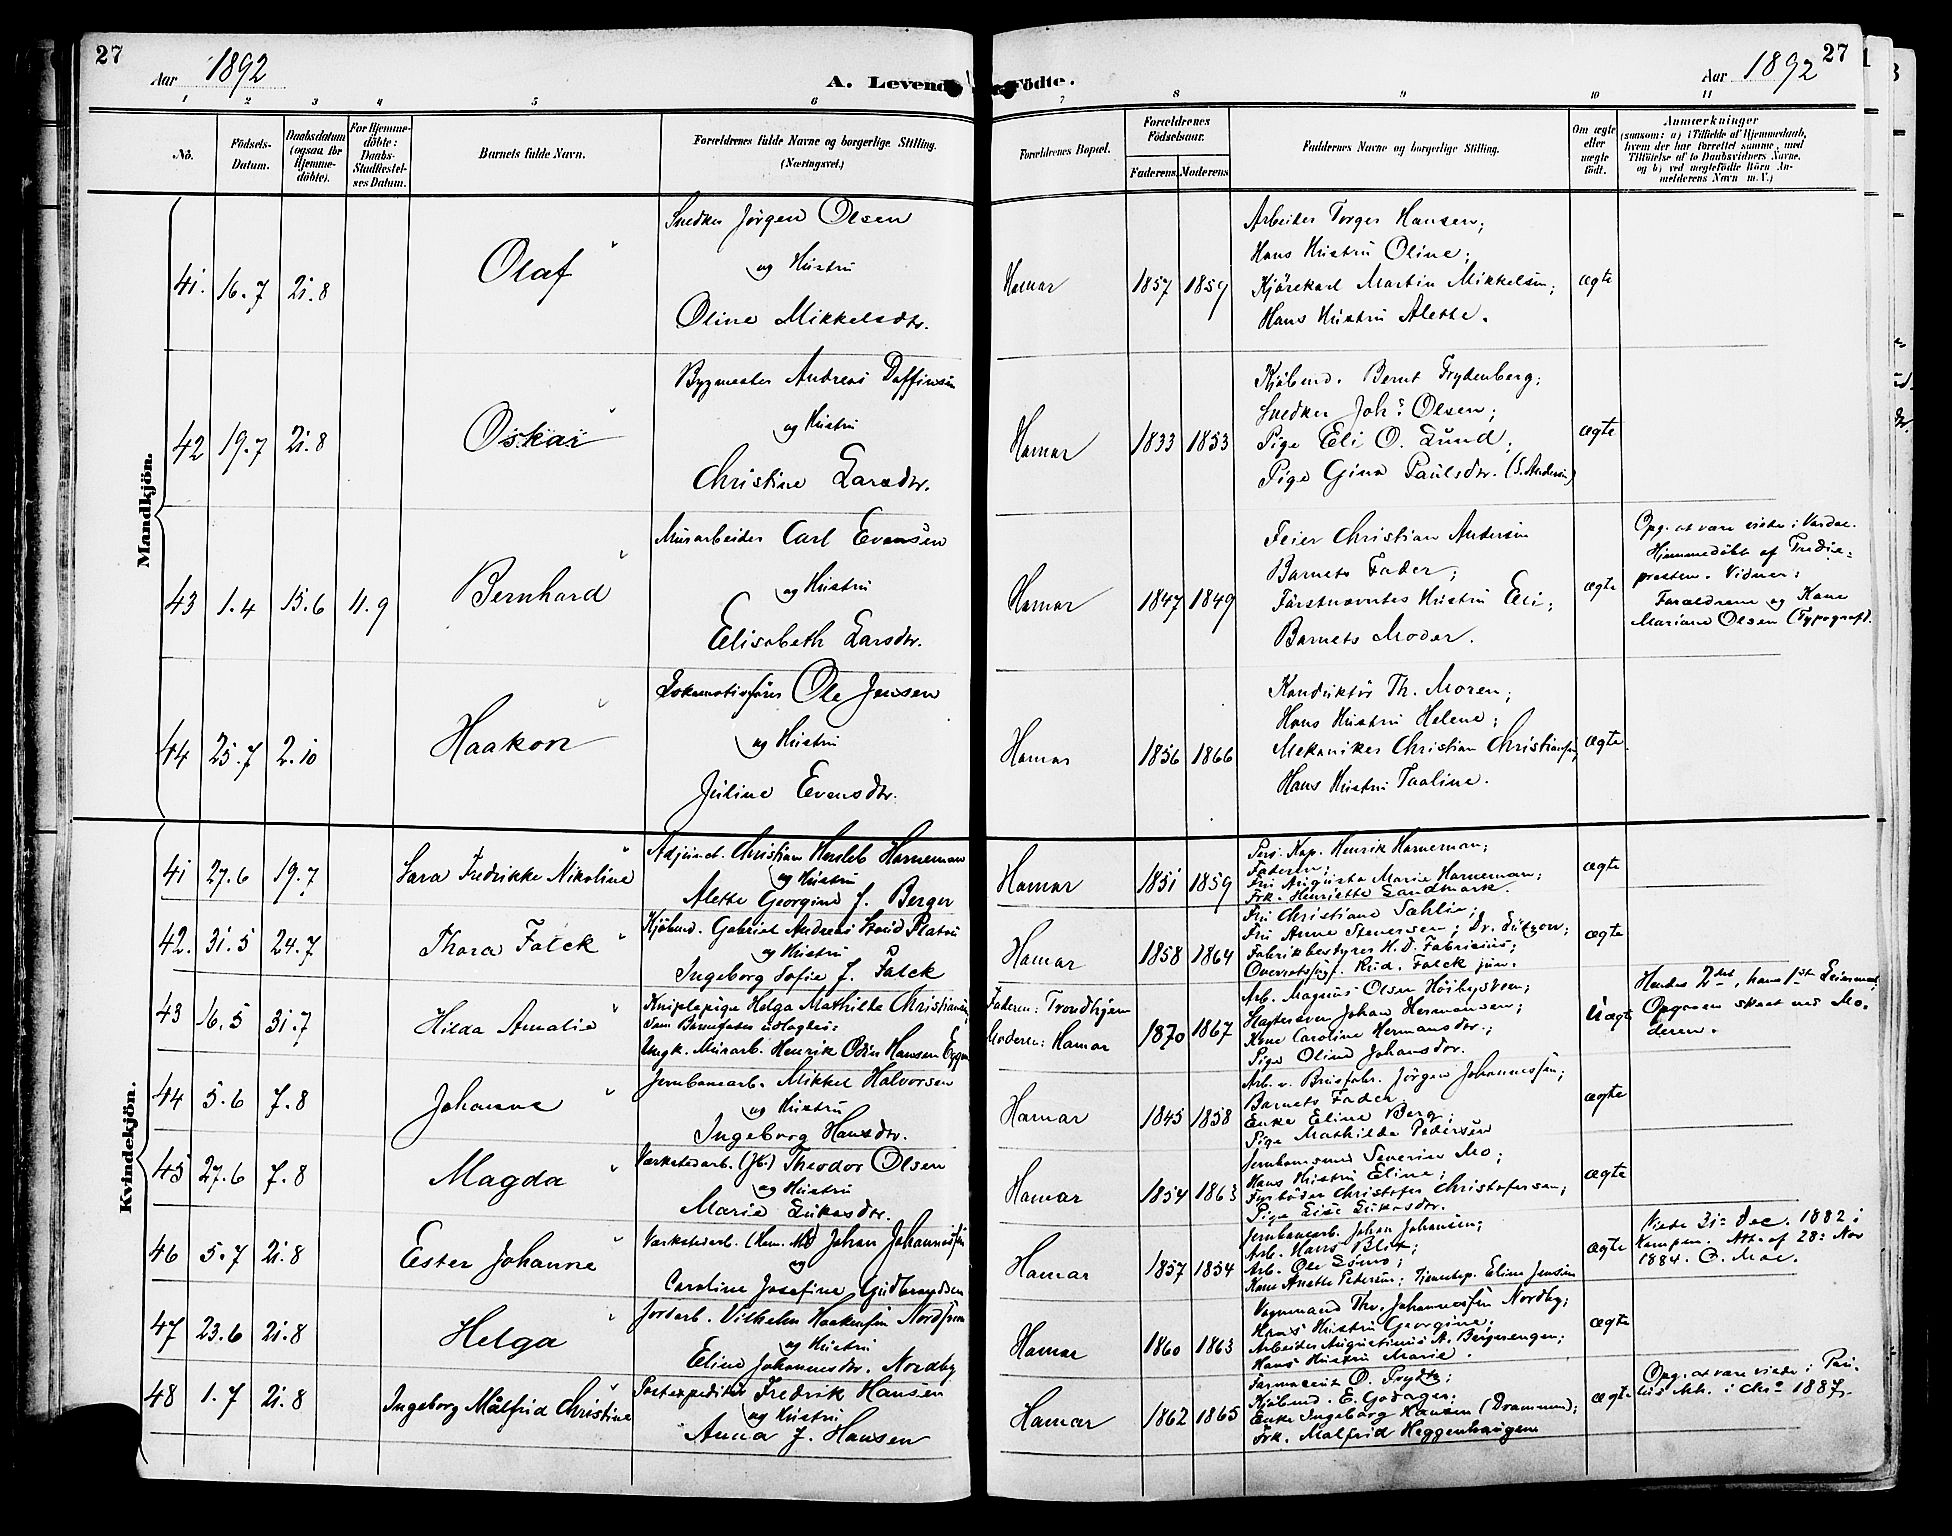 27
Aar 1892
A. Levende Födte.
Aar 1892
27
1 2 3 4 5 6 7 8 9 10 11
No.
Födsels-Datum.
Daabsdatum (ogsaa for Hjemme-döbte).
For Hjemme-döbte: Daabs-Stadfæstel-ses Datum.
Barnets fulde Navn.
Forældrenes fulde Navne og borgerlige Stilling. (Næringsvei.)
Forældrenes Bopæl.
Forældrenes Födselsaar.
Faderens. Moderens.
Faddernes Navne og borgerlige Stilling.
Om ægte eller uægte födt.
Anmærkninger
(saasom: a) i Tilfælde af Hjemmedaab, hvem der har forrettet samme, med Tilföielse af to Daabsvidners Navne, og b) ved uægtefödte Börn An-melderens Navn m. V.)
Mandkjön.
41. 16.7 21.8 Olaf
Snedker Jörgen Olsen
og Hustru
Oline Mikkelsdtr.
Hamar 1857 1859
Arbeider Torger Hansen;
Hans Hustru Oline;
Kjörekarl Martin Mikkelsen;
Hans Hustru Alette.
ægte
42 19.7 21.8 Oskar
Bygmester Andreas Daffinsen
og Hustru
Christine Larsdtr.
Hamar 1833 1853
Kjöbmd. Bernt Frydenberg;
Snedker Johs. Olsen;
Pige Eli O. Lund;
Pige Gina Paulsdtr. (S. Andersen)
ægte
43 1.4 15.6 11.9 Bernhard
Murarbeider Carl Evensen
og Hustru
Elisabeth Larsdtr.
Hamar 1847 1849
Feier Christian Andersen
Barnets Fader;
Förstnævntes Hustru Eli;
Barnets Moder.
ægte
Opg. at være viede i Vardal.
Hjemmedöbt af Tredie-
presten. Vidner:
Forældrene og Kone
Mariane Olsen (Typograf).
44 25.7 2.10 Haakon
Lokomotivförer Ole Jensen
og Hustru
Juline Evensdtr.
Hamar 1856 1866
Konduktör Th. Moren;
Hans Hustru Helene;
Mekaniker Christian Christiansen;
Hans Hustru Pauline.
ægte
Kvindekjön.
41 27.6 19.7 Sara Fredrikke Nikoline
Adjunct. Christian Hersleb Horneman
og Hustru
Alette Georgine f. Berger
Hamar 1851 1859
Pers. Kap. Henrik Horneman;
Faderen;
Fru Augusta Marie Horneman;
Frk. Henriette Landmark.
ægte
42. 31.5 24.7 Thora Falck
Kjöbmd. Gabriel Andreas Stoud Platou
og Hustru
Ingeborg Sofie f. Falck
Hamar 1858 1864
Fru Christiane Sahlin;
Fru Anne Stenersen; Dr. Lützow;
Fabrikbestyrer H. D. Fabricius;
Overretssagf. Rud. Falck jun.
ægte
43 16.5 31.7 Hilda Amalie
Kniplepige Helga Mathilde Christiansen,
Som Barnefader udlagdes:
Ungk. Murarb. Henrik Odin Hansen
Faderen: Trondhjem
Moderen: Hamar
1870 1867
Arb. Magnus Olsen Höibysveen;
Slagtersven Johan Hermansen;
Kone Caroline Hermansdtr.;
Pige Oline Johansdtr.
Uægte
Hendes 2det, hans 1ste Leiermaal
Opgaven skeet ved Mo-
deren.
44 5.6 7.8 Johanne
Jernbanearb. Mikkel Halvorsen
og Hustru
Ingeborg Hansdtr.
Hamar 1845 1858
Arb. v. Brusfabr. Jörgen Johannessen;
Barnets Fader.
Enke Eline Berg;
Pige Mathilde Pedersen
ægte
45 27.6 7.8 Magda
Værkstedarb. (Jb.) Theodor Olsen
og Hustru
Marie Lukasdtr.
Hamar 1854 1863
Jernbanemd Severin Mo;
Hans Hustru Eline;
Fyrböder Christofer Christofersen;
Pige Lise Lukasdtr.
ægte
46 5.7 21.8 Ester Johanne
Værkstedarb. (Ham. ) Johan Johannessen
og
Caroline Josefine Gudbrandsen
Hamar 1857 1854
Jernbanearb. Johan Johansen;
Arb. Hans Blix;
Arb. Ole
Kone Anette Petersen; Tjenestep. Eline Jensen
ægte
Viede 31. Dec. 1882 i
Kampen. Att. af 28. Nov
1884. O. Moe.
47 23.6 21.8 Helga
Jordarb. Vilhelm Haakensen
og Hustru
Eline Johannesdtr. Nordby
Hamar 1860 1863
Vognmand Thv. Johannessen Nordby;
Hans Hustru Georgine;
Arbeider Augustinus A. Bergersengen;
Hans Hustru Marie.
ægte
48 1.7 21.8 Ingeborg Målfrid Christine
Postexpeditör Fredrik Hansen
og Hustru
Anna f. Hansen
Hamar 1862 1865
Farmaceut O. Trydtz;
Kjöbmd. E. Godager;
Enke Ingeborg Hansen (Drammen);
Frk. Målfrid Heggenhaugen
ægte
Opg. at være viede i Pau-
lus Mh. i Chra 1887.